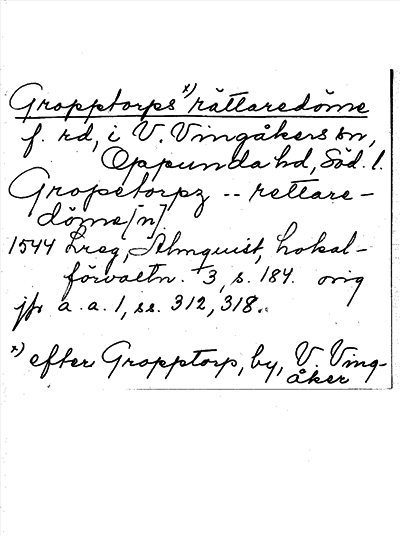 Gropptorps x) rättaredöme
f. rd, i V. Vingåkers sn,
Oppunda hd, Söd. l.
Gropetorpz -- rettare-
döme[n]
1544 Lreg, Almquist, Lokal-
förvaltn. 3, s. 184. orig
jfr a.a. 1, ss. 312, 318.
x) efter Gropptorp, by, V. Ving-
åker